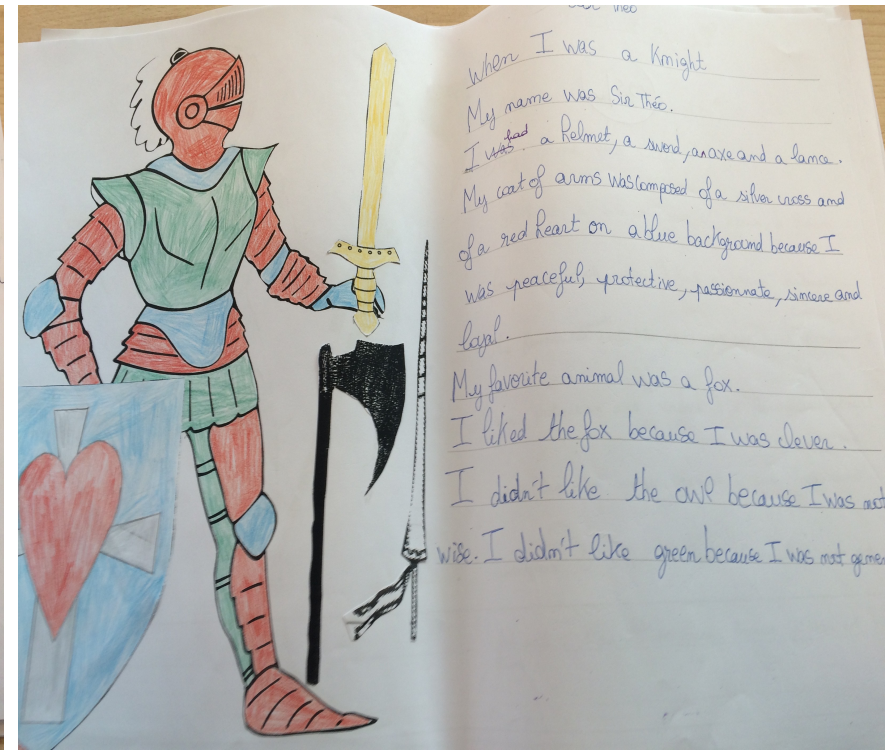 Sir Théo
When I was a Knight
My name was Sir Théo.
I was had a helmet, a sword, an axe and a lance.
My coat of arms was composed of a silver cross and
of a red heart on a blue background because I
was peaceful, protective, passionnate, sincere and
loyal.
My favorite animal was a fox.
I liked the fox because I was clever.
I didn't like the owl because I was not
wise. I didn't like green because I was not